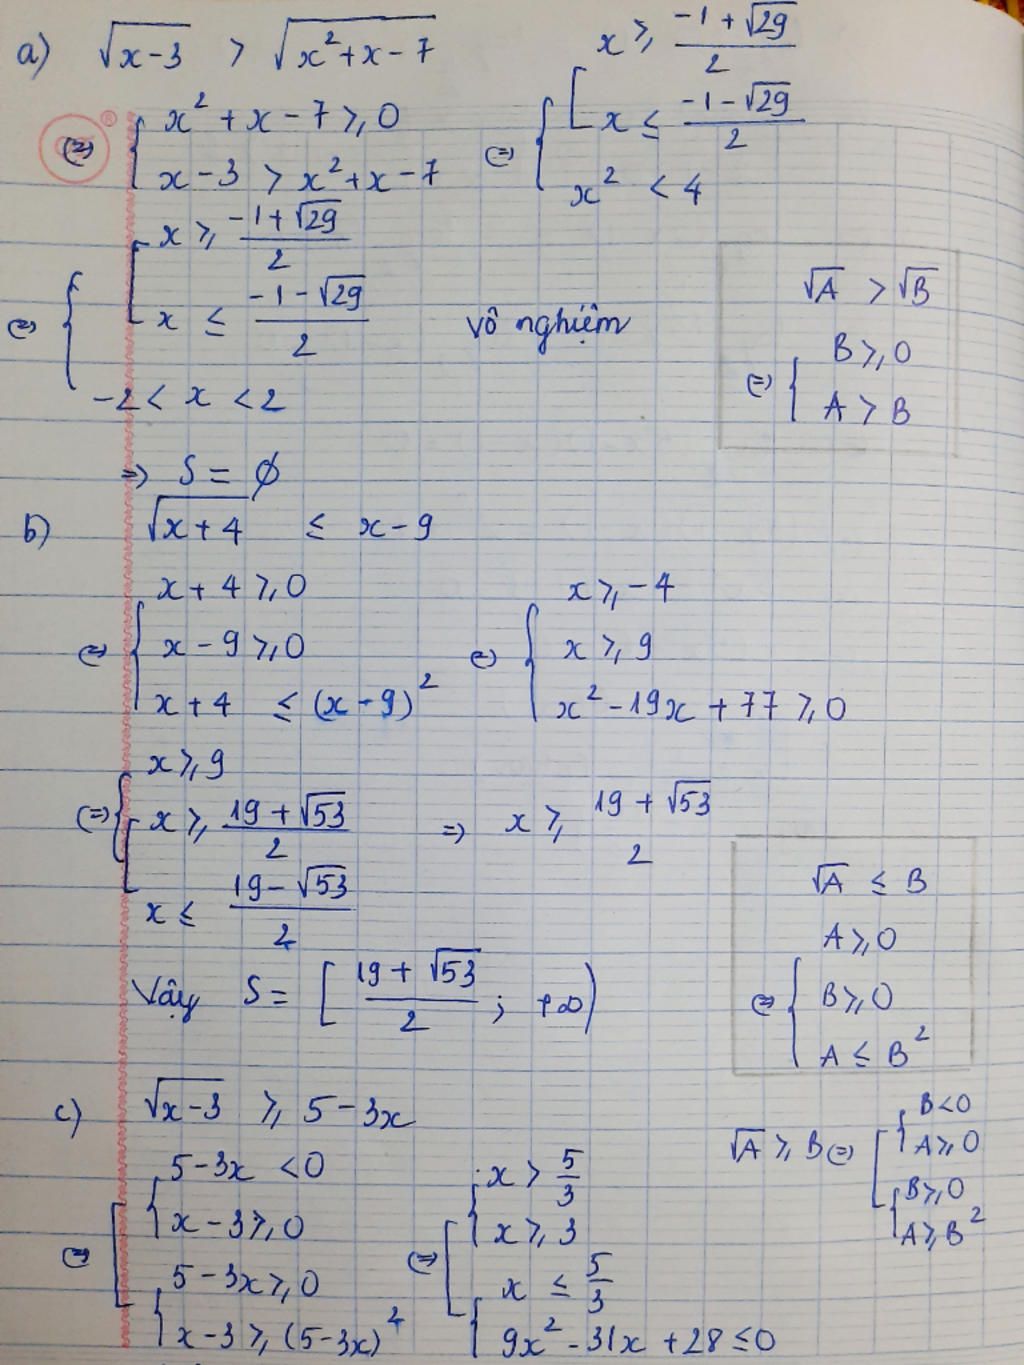 a) √(x-3) > √(x²+x-7)
(=) { x²+x-7 ≥ 0
x-3 > x²+x-7
(=) { [ x ≥ (-1+√29)/2
x ≤ (-1-√29)/2
x² < 4
(=) { [ x ≥ (-1+√29)/2
x ≤ (-1-√29)/2
-2 < x < 2
vô nghiệm
√A > √B
(=) { B ≥ 0
A > B
=> S = ∅
b) √(x+4) ≤ x-9
(=) { x+4 ≥ 0
x-9 ≥ 0
x+4 ≤ (x-9)²
(=) { x ≥ -4
x ≥ 9
x²-19x+77 ≥ 0
(=) { x ≥ 9
[ x ≥ (19+√53)/2
x ≤ (19-√53)/2
=> x ≥ (19+√53)/2
Vậy S = [ (19+√53)/2 ; +∞)
√A ≤ B
(=) { A ≥ 0
B ≥ 0
A ≤ B²
c) √(x-3) ≥ 5-3x
(=) [ { 5-3x < 0
x-3 ≥ 0
{ 5-3x ≥ 0
x-3 ≥ (5-3x)²
(=) [ { x > 5/3
x ≥ 3
{ x ≤ 5/3
9x²-31x+28 ≤ 0
√A ≥ B (=) [ { B < 0
A ≥ 0
{ B ≥ 0
A ≥ B²